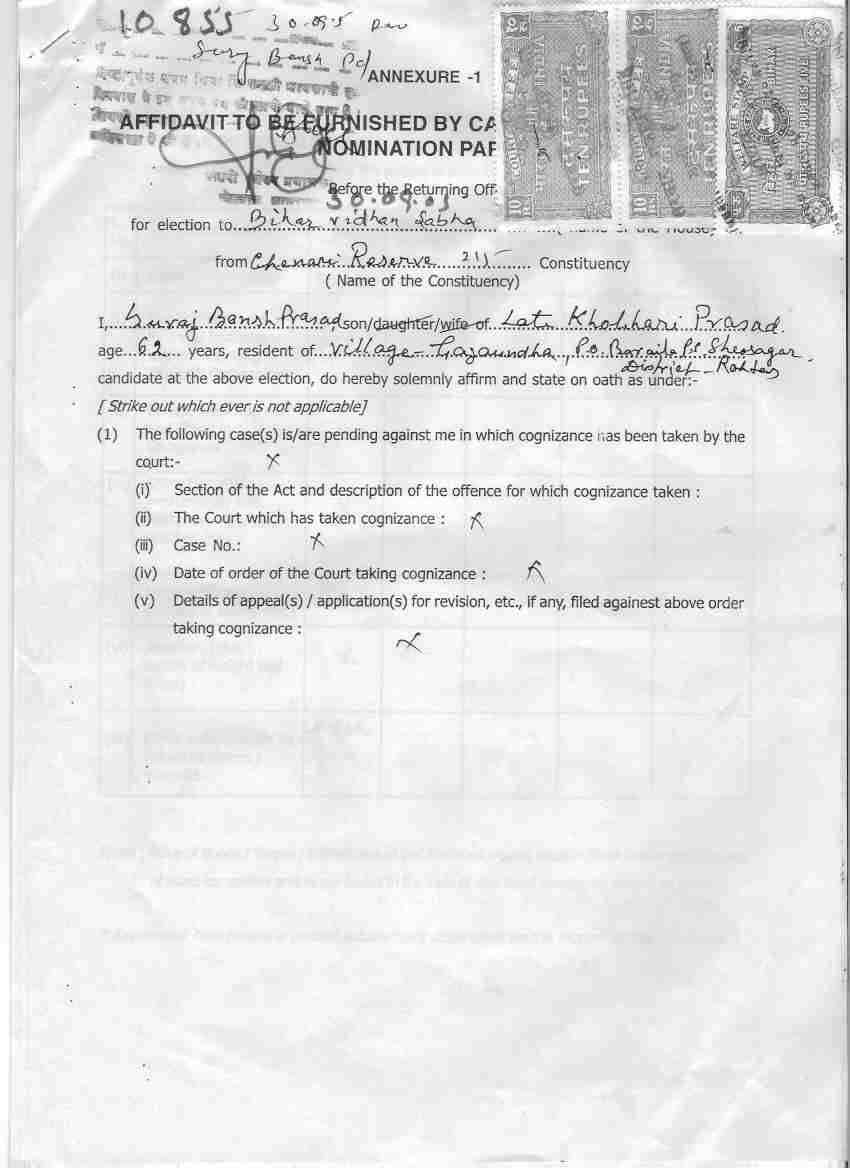 10855 30.09.5
Suraj Bansh Pd
ANNEXURE -1
AFFIDAVIT TO BE FURNISHED BY CA
NOMINATION PAP
Before the Returning Off
30.09.05
for election to Bihar Vidhan Sabha
from Chenari Reserve 211 Constituency
( Name of the Constituency)
I, Suraj Bansh Prasad son/daughter/wife of Late Prasad
age 62 years, resident of village - Gajaundha, P.O. Baraila P.S. Sheosagar
District - Rohtas
candidate at the above election, do hereby solemnly affirm and state on oath as under:-
[ Strike out which ever is not applicable]
(1) The following case(s) is/are pending against me in which cognizance has been taken by the
court:- X
(i) Section of the Act and description of the offence for which cognizance taken :
(ii) The Court which has taken cognizance : X
(iii) Case No.: X
(iv) Date of order of the Court taking cognizance : X
(v) Details of appeal(s) / application(s) for revision, etc., if any, filed againest above order
taking cognizance :
X
INDIA
TEN RUPEES
INDIA
TEN RUPEES
WELFARE STAMP
BIHAR